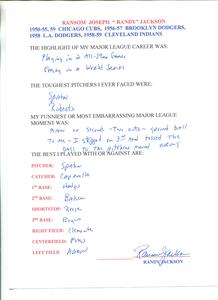 RANSOM JOSEPH "RANDY" JACKSON
1950-55, 59 CHICAGO CUBS, 1956-57 BROOKLYN DODGERS,
1958 L.A. DODGERS, 1958-59 CLEVELAND INDIANS
THE HIGHLIGHT OF MY MAJOR LEAGUE CAREER WAS:
Playing in 2 All-Star Games
Playing in a World Series
THE TOUGHEST PITCHERS I EVER FACED WERE:
Spahn
Roberts
MY FUNNIEST OR MOST EMBARRASSING MAJOR LEAGUE
MOMENT WAS:
man on second - Two outs - ground ball
to me - I stepped on 3rd and tossed the
ball to the pitchers mound
THE BEST I PLAYED WITH OR AGAINST ARE:
PITCHER: Spahn
CATCHER: Campanella
1st BASE: Hodges
2nd BASE: Baker
SHORTSTOP: Reese
3rd BASE: Boyer
RIGHT FIELD: Clemente
CENTERFIELD: Mays
LEFT FIELD: Aaron
Randy Jackson
RANDY JACKSON